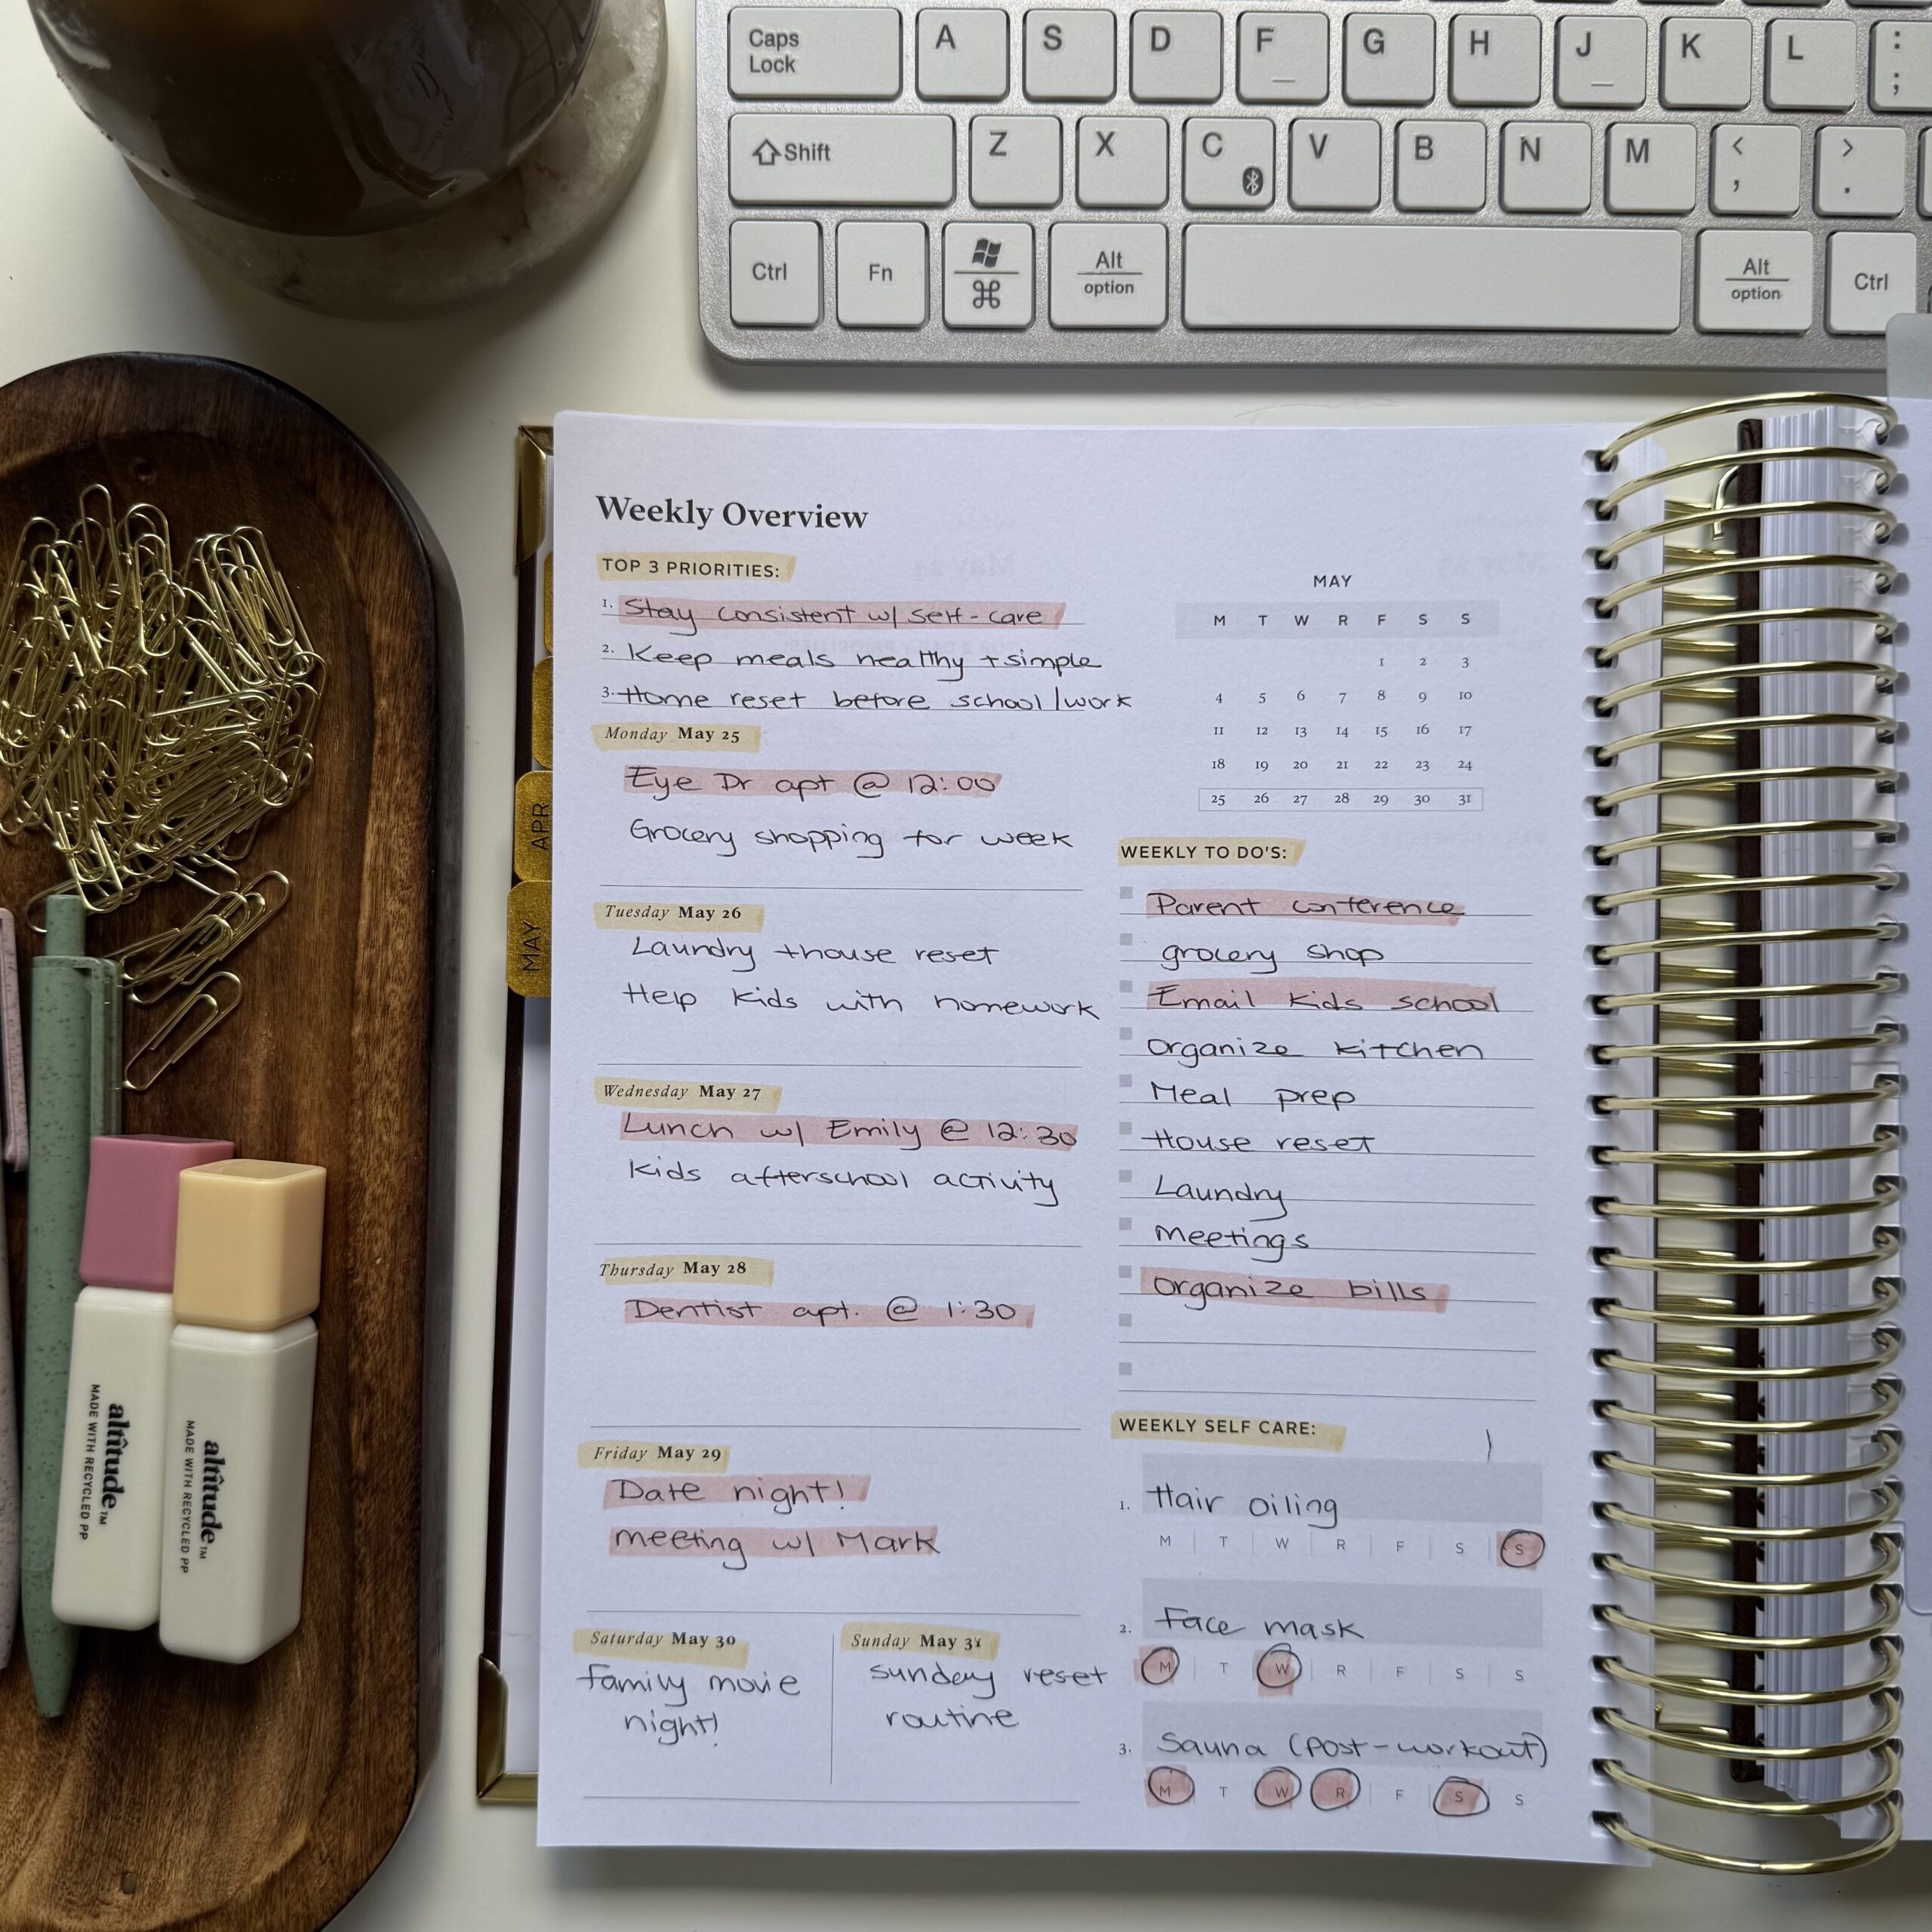 Caps
Lock
A
S
D
F
G
H
J
K
L
:
;
Shift
Z
X
C
V
B
N
M
<
,
>
.
Ctrl
Fn
Alt
option
Alt
option
Ctrl
Weekly Overview
TOP 3 PRIORITIES:
1. Stay consistent w/ self-care
2. Keep meals healthy + simple
3. Home reset before school/work
Monday May 25
Eye Dr apt @ 12:00
Grocery shopping for week
Tuesday May 26
Laundry + house reset
Help kids with homework
Wednesday May 27
Lunch w/ Emily @ 12:30
Kids afterschool activity
Thursday May 28
Dentist apt. @ 1:30
Friday May 29
Date night!
meeting w/ Mark
Saturday May 30
family movie
night!
Sunday May 31
Sunday reset
routine
MAY
M T W R F S S
1 2 3
4 5 6 7 8 9 10
11 12 13 14 15 16 17
18 19 20 21 22 23 24
25 26 27 28 29 30 31
WEEKLY TO DO'S:
Parent conference
grocery shop
Email kids school
organize kitchen
Meal prep
House reset
Laundry
Meetings
organize bills
WEEKLY SELF CARE:
1. Hair oiling
M T W R F S S
2. Face mask
M T W R F S S
3. Sauna (post-workout)
M T W R F S S
APR
MAY
altitude™
MADE WITH RECYCLED PP
altitude™
MADE WITH RECYCLED PP